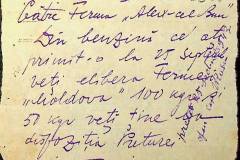 Către Firma „Alex. cel Bun"
Din benzină ce ați
primit-o la 25 Septembr
veți elibera Fermei
„Moldova" 100 kgr
50 kgr veți ține la
dispoziția Preturei